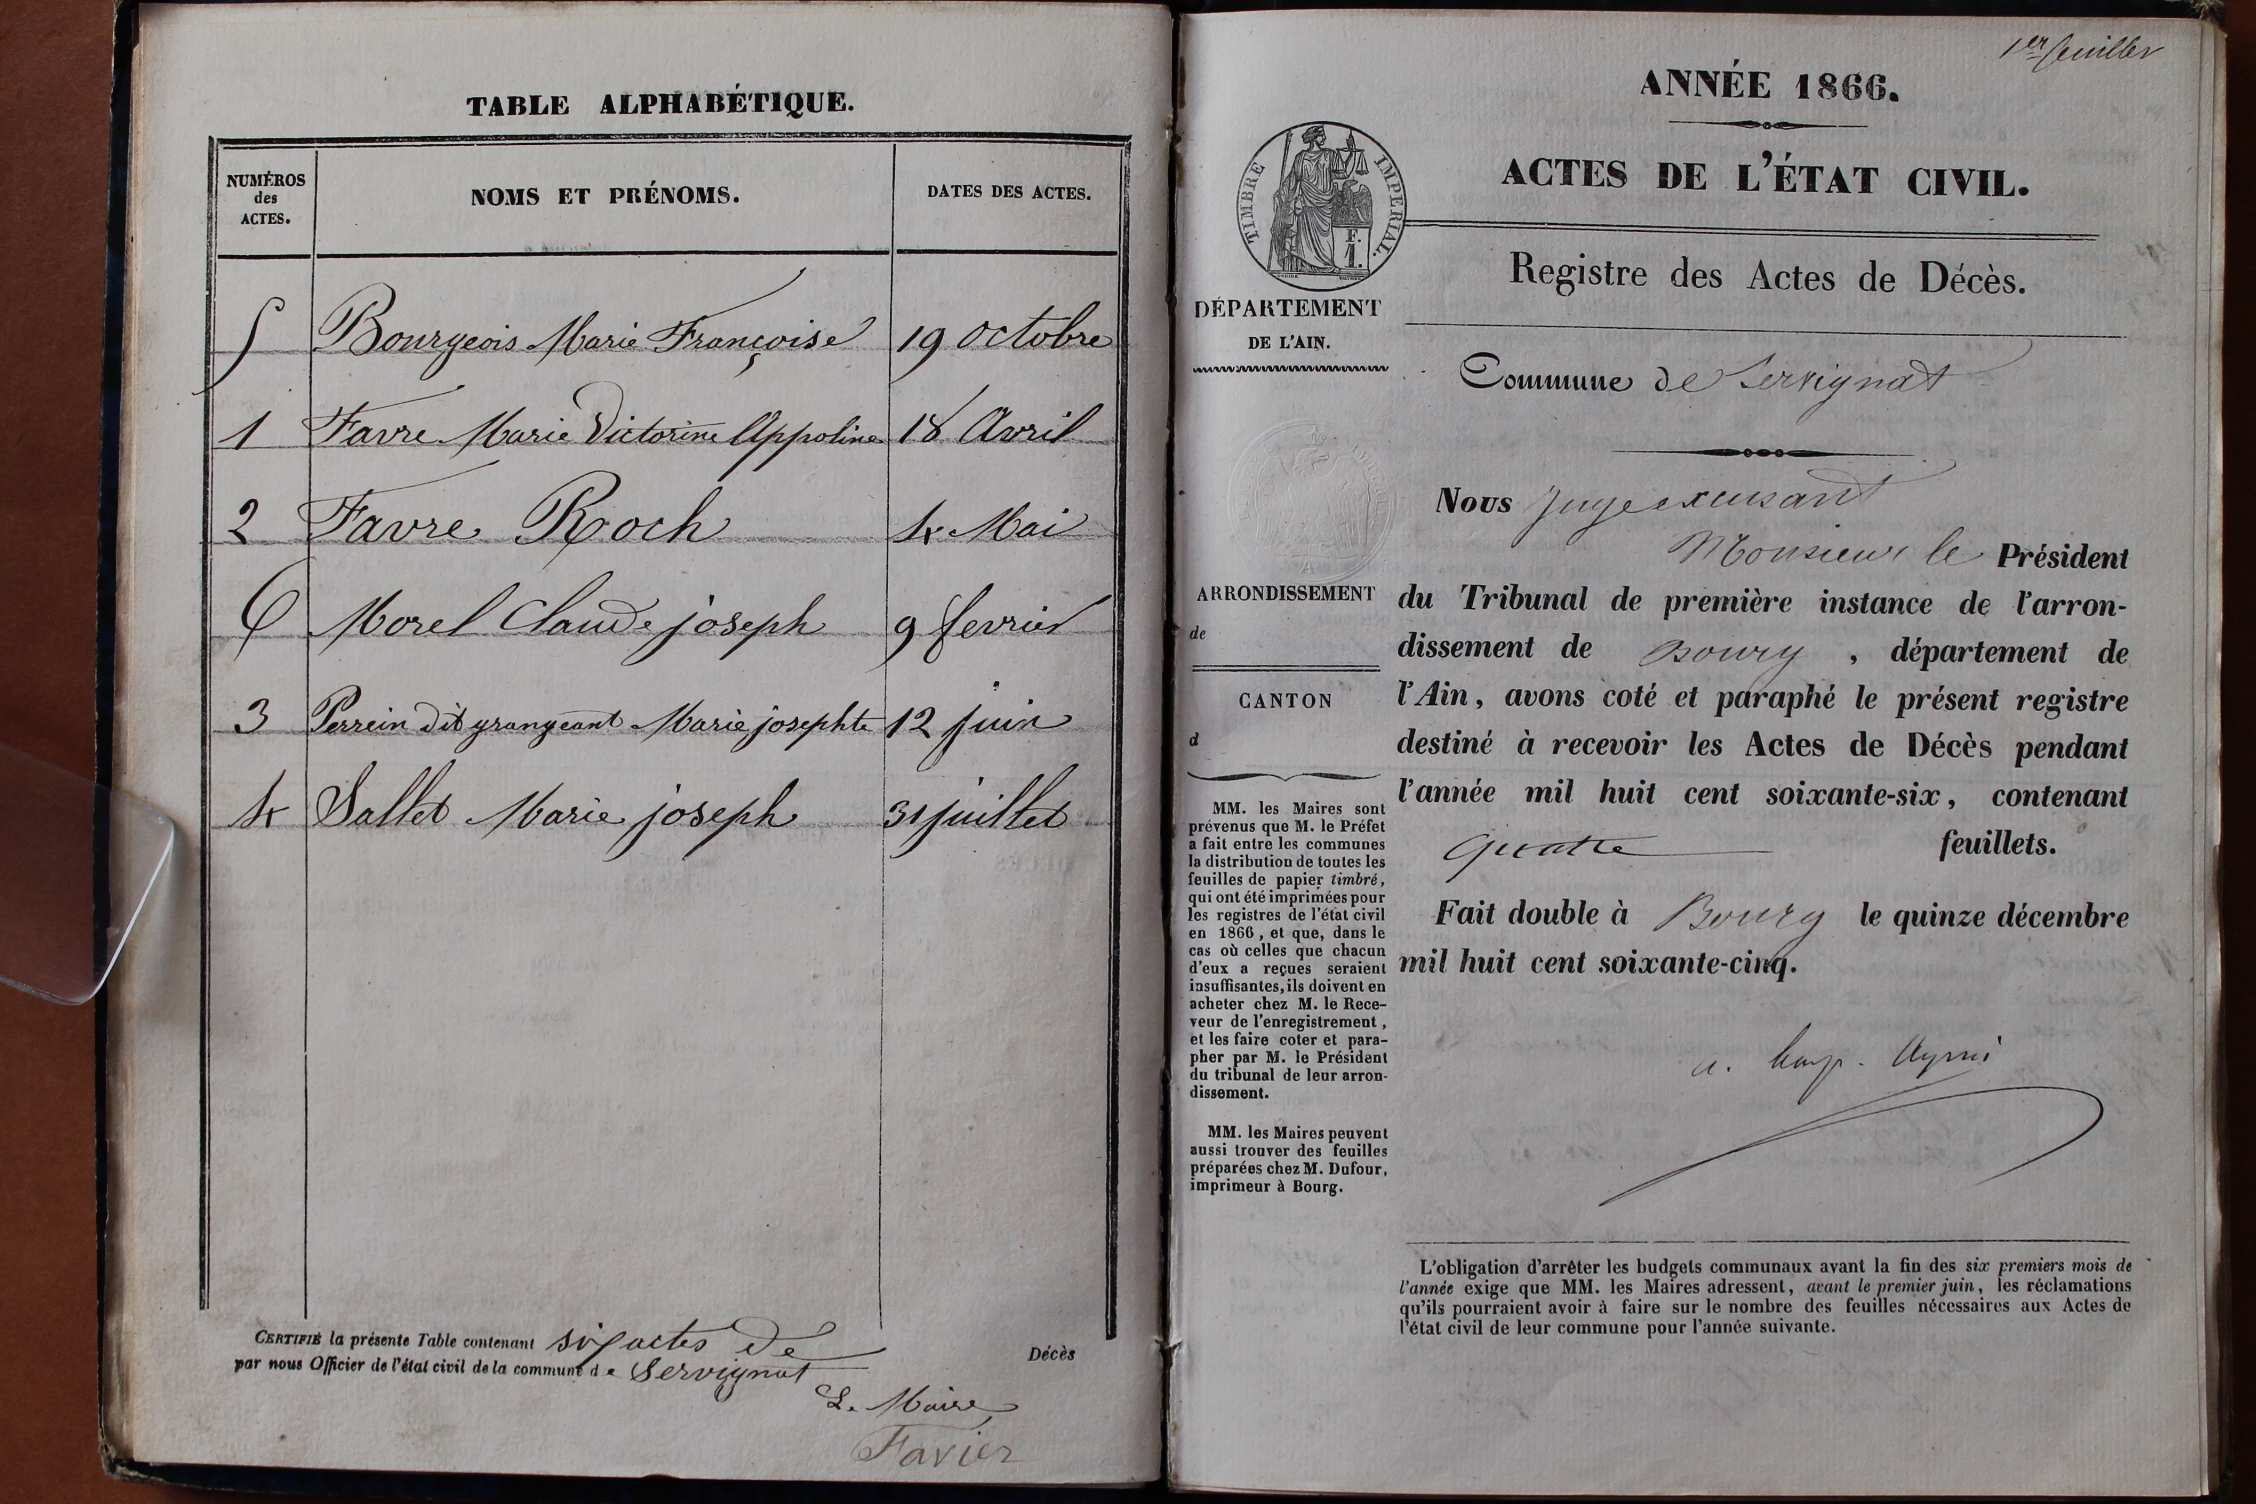 TABLE ALPHABÉTIQUE.
NUMÉROS des ACTES. NOMS ET PRÉNOMS. DATES DES ACTES.
5 Bourgeois Marie Françoise 19 octobre
1 Favre Marie Victorine Appoline 18 Avril
2 Favre Roch 4 Mai
6 Morel Claude joseph 9 fevrier
3 Perrein dit grangeant Marie josephte 12 juin
4 Sallet Marie joseph 31 juillet
CERTIFIÉ la présente Table contenant six actes de Décès
par nous Officier de l'état civil de la commune de Servignat
Le Maire
Favier
1er feuillet
ANNÉE 1866.
ACTES DE L'ÉTAT CIVIL.
TIMBRE IMPERIAL.
F.
1.
Registre des Actes de Décès.
DÉPARTEMENT
DE L'AIN.
Commune de Servignat
ARRONDISSEMENT
de
CANTON
d
MM. les Maires sont
prévenus que M. le Préfet
a fait entre les communes
la distribution de toutes les
feuilles de papier timbré,
qui ont été imprimées pour
les registres de l'état civil
en 1866, et que, dans le
cas où celles que chacun
d'eux a reçues seraient
insuffisantes, ils doivent en
acheter chez M. le Rece-
veur de l'enregistrement,
et les faire coter et para-
pher par M. le Président
du tribunal de leur arron-
dissement.
MM. les Maires peuvent
aussi trouver des feuilles
préparées chez M. Dufour,
imprimeur à Bourg.
Nous Juge excusant
Monsieur le Président
du Tribunal de première instance de l'arron-
dissement de Bourg, département de
l'Ain, avons coté et paraphé le présent registre
destiné à recevoir les Actes de Décès pendant
l'année mil huit cent soixante-six, contenant
quatre feuillets.
Fait double à Bourg le quinze décembre
mil huit cent soixante-cinq.
L'obligation d'arrêter les budgets communaux avant la fin des six premiers mois de
l'année exige que MM. les Maires adressent, avant le premier juin, les réclamations
qu'ils pourraient avoir à faire sur le nombre des feuilles nécessaires aux Actes de
l'état civil de leur commune pour l'année suivante.